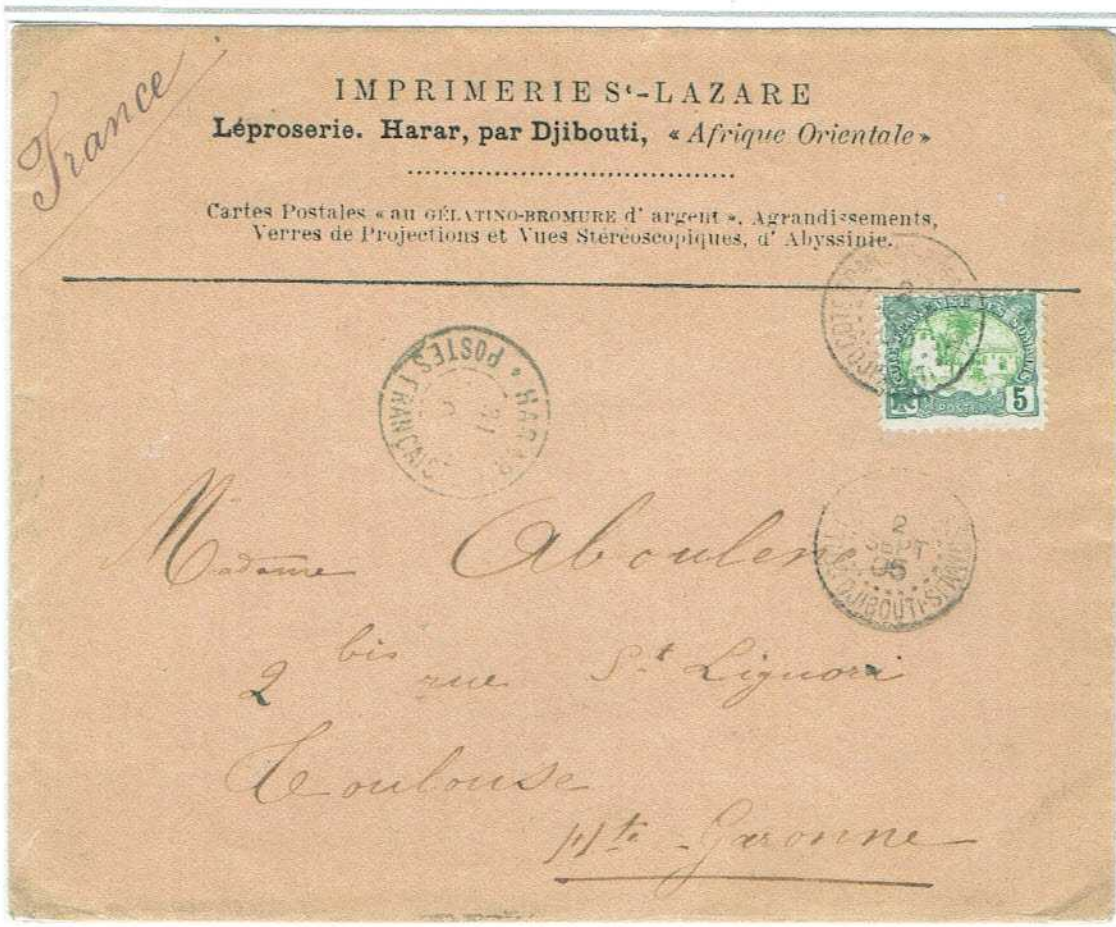 France
IMPRIMERIE St-LAZARE
Léproserie. Harar, par Djibouti, « Afrique Orientale »
Cartes Postales « au GÉLATINO-BROMURE d' argent ». Agrandissements,
Verres de Projections et Vues Stéréoscopiques, d' Abyssinie.
5
POSTES
HARAR
POSTES FRANÇAISES
Madame Aboulenc
2
SEPT
05
DJIBOUTI
2 bis rue St Liguori
Toulouse
Hte - Garonne